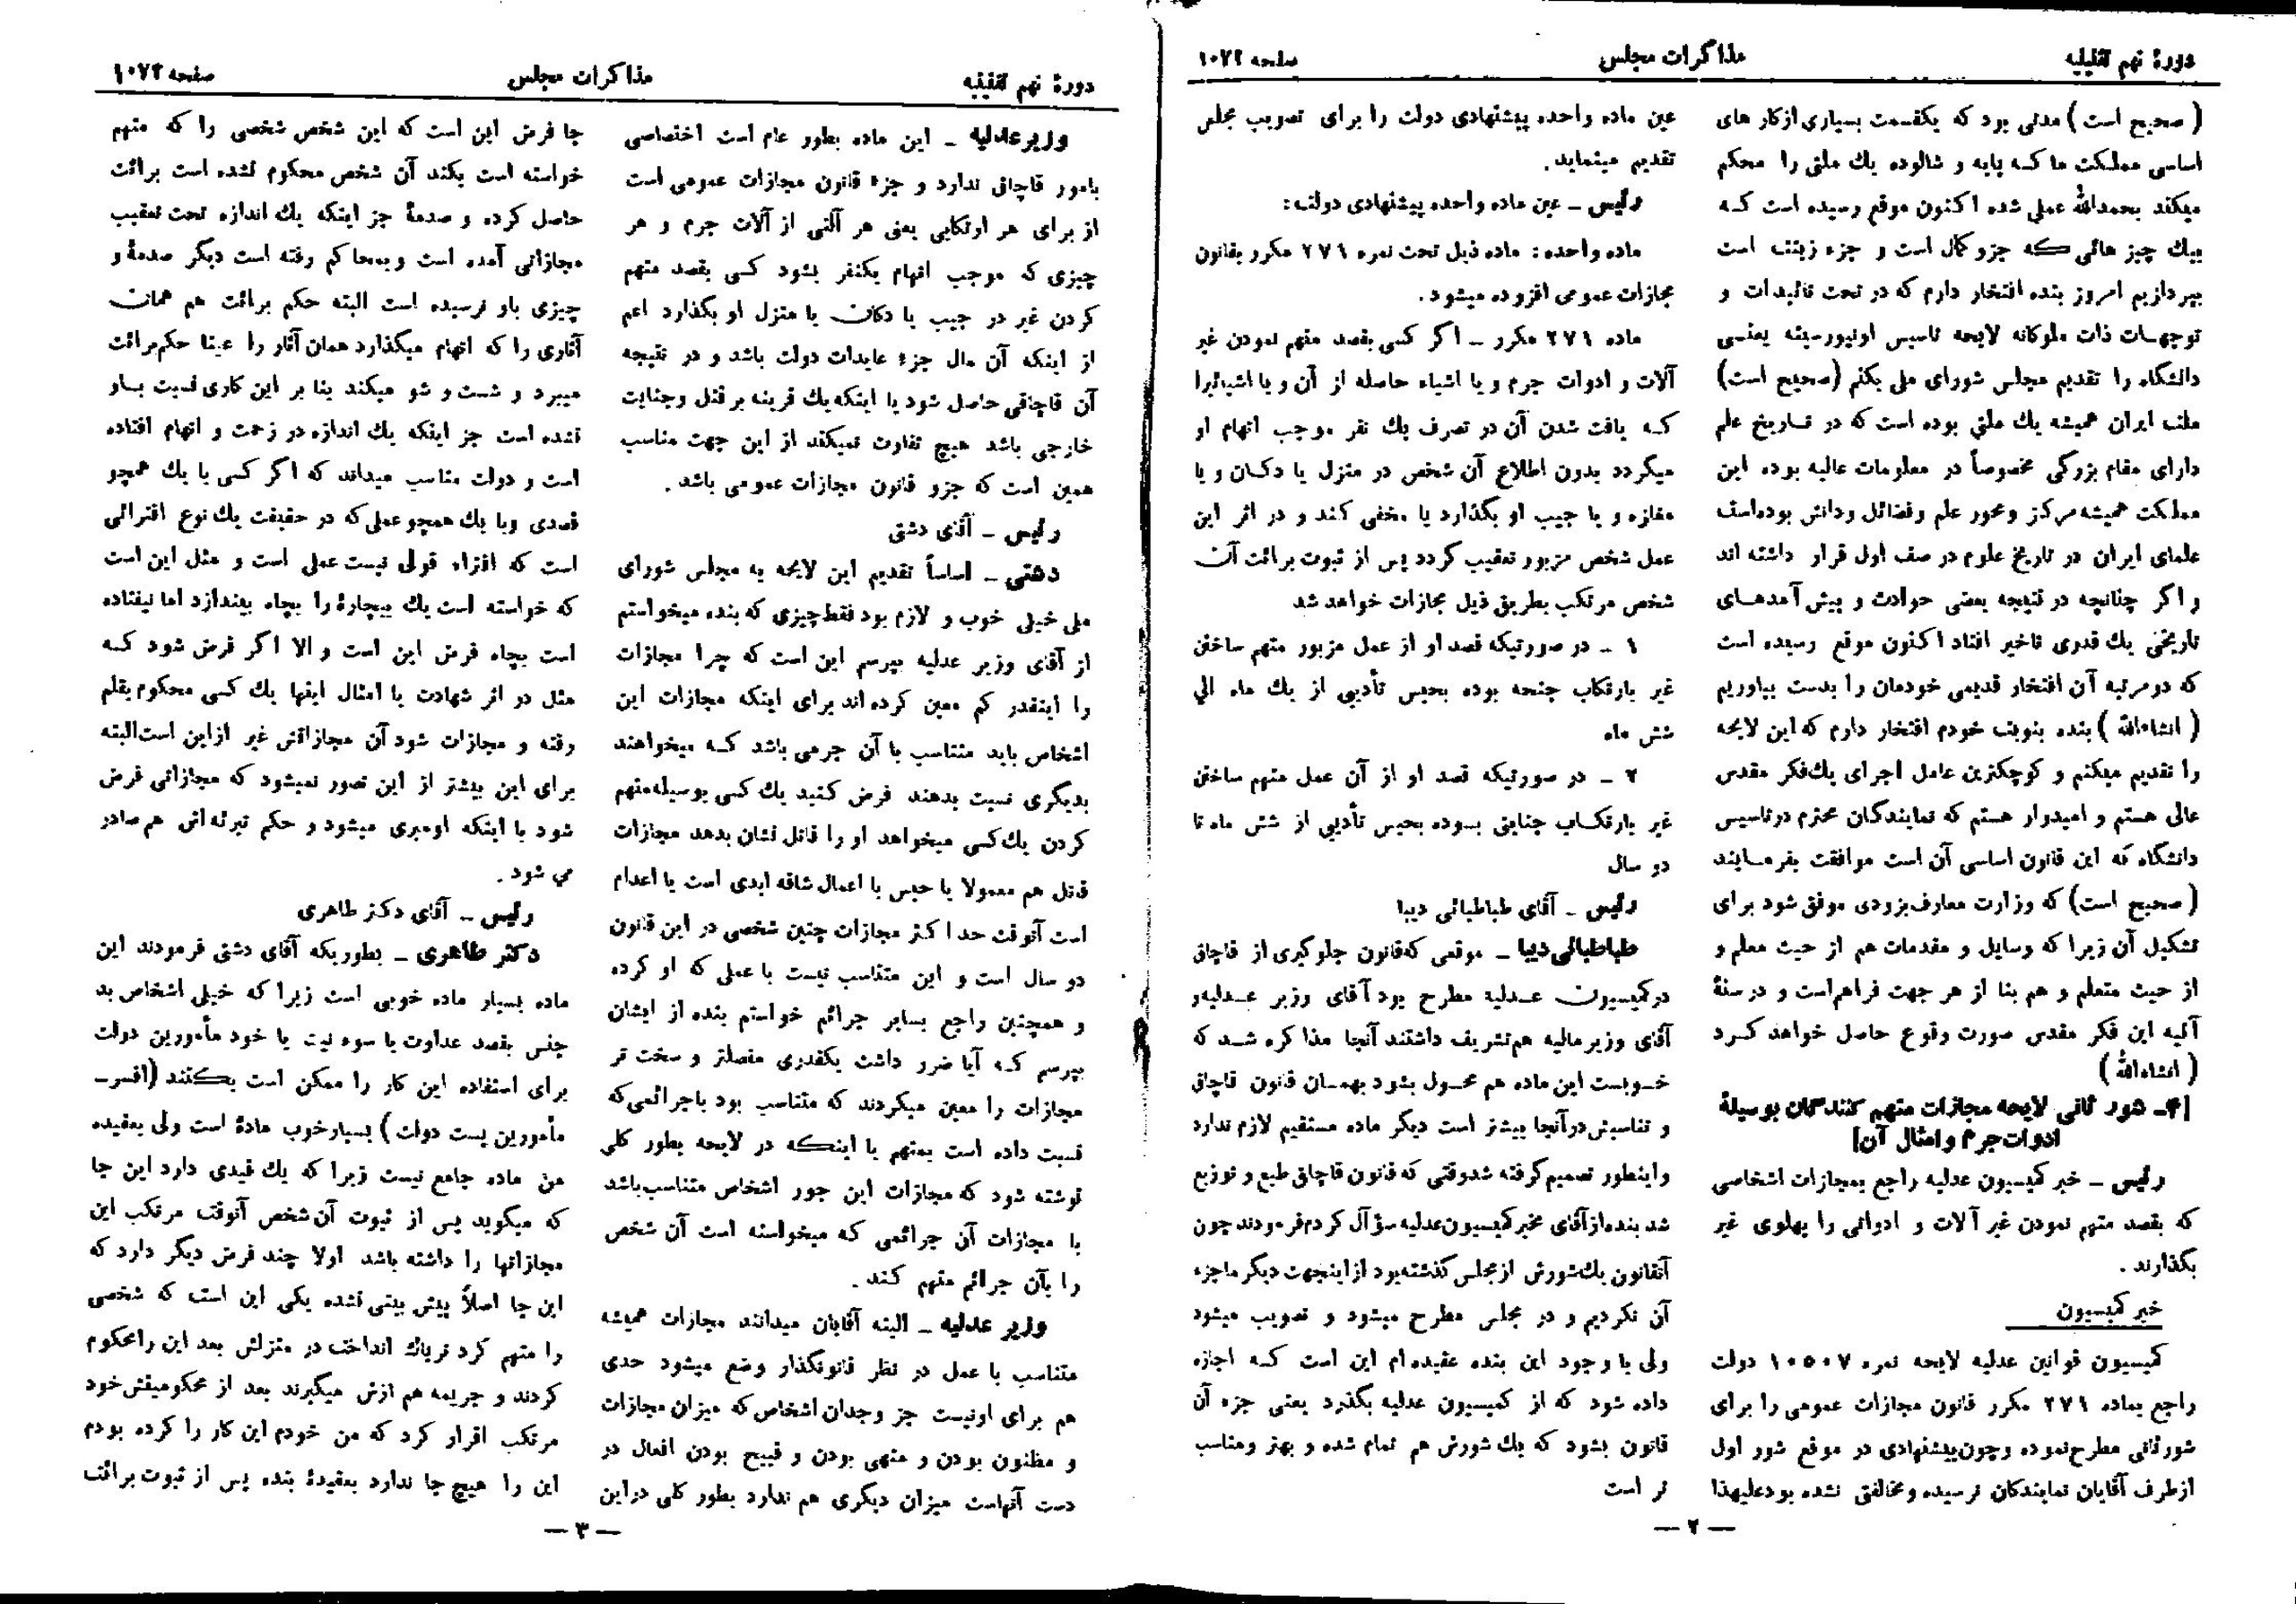 دورهٔ نهم تقنینیه
مذاکرات مجلس
صفحه ۱۰۷۲
( صحیح است ) مدتی بود که یکقسمت بسیاری ازکار های
اساسی مملکت ما که پایه و شالوده یك ملتی را محکم
میکند بحمدالله عملی شده اکنون موقع رسیده است که
بیك چیز هائی که جزو کمال است و جزء زینت است
بپردازیم امروز بنده افتخار دارم که در تحت تائیدات و
توجهات ذات ملوکانه لایحه تاسیس اونیورسیته یعنی
دانشگاه را تقدیم مجلس شورای ملی بکنم (صحیح است)
ملت ایران همیشه یك ملتی بوده است که در تاریخ علم
دارای مقام بزرگی مخصوصاً در معلومات عالیه بوده این
مملکت همیشه مرکز ومحور علم وفضائل ودانش بوده‌است
علمای ایران در تاریخ علوم در صف اول قرار داشته اند
و اگر چنانچه در نتیجه بعضی حوادث و پیش آمدهـای
تاریخی یك قدری تاخیر افتاد اکنون موقع رسیده است
که دومرتبه آن افتخار قدیمی خودمان را بدست بیاوریم
( انشاءالله ) بنده بنوبت خودم افتخار دارم که این لایحه
را تقدیم میکنم و کوچکترین عامل اجرای یك‌فکر مقدس
عالی هستم و امیدوار هستم که نمایندگان محترم درتاسیس
دانشگاه که این قانون اساسی آن است موافقت بفرمـایند
(صحیح است) که وزارت معارف‌بزودی موفق شود برای
تشکیل آن زیرا که وسایل و مقدمات هم از حیث معلم و
از حیث متعلم و هم بنا از هر جهت فراهم‌است و درسنهٔ
آتیه این فکر مقدس صورت وقوع حاصل خواهد کرد
( انشاءالله )
[۴- شور ثانی لایحه مجازات متهم کنندگان بوسیلهٔ
ادوات‌جرم و امثال آن]
رئیس - خبر کمیسیون عدلیه راجع بمجازات اشخاصی
که بقصد متهم نمودن غیر آلات و ادواتی را پهلوی غیر
بگذارند .
خبر کمیسیون
کمیسیون قوانین عدلیه لایحه نمره ۱۰۵۰۷ دولت
راجع بماده ۲۷۱ مکرر قانون مجازات عمومی را برای
شورثانی مطرح‌نموده وچون‌پیشنهادی در موقع شور اول
ازطرف آقایان نمایندگان نرسیده ومخالفتی نشده بودعلیهذا
عین ماده واحده پیشنهادی دولت را برای تصویب مجلس
تقدیم مینماید.
رئیس - عین ماده واحده پیشنهادی دولت:
ماده واحده: ماده ذیل تحت نمره ۲۷۱ مکرر بقانون
مجازات عمومی افزوده میشود.
ماده ۲۷۱ مکرر - اگر کسی بقصد متهم نمودن غیر
آلات و ادوات جرم و یا اشیاء حاصله از آن و یا اشیائیرا
که یافت شدن آن در تصرف یك نفر موجب اتهام او
میگردد بدون اطلاع آن شخص در منزل یا دکـان و یا
مغازه و یا جیب او بگذارد یا مخفی کند و در اثر این
عمل شخص مزبور تعقیب گردد پس از ثبوت برائت آن
شخص مرتکب بطریق ذیل مجازات خواهد شد
۱ - در صورتیکه قصد او از عمل مزبور متهم ساختن
غیر بارتکاب جنحه بوده بحبس تأدیبی از یك ماه الی
شش ماه
۲ - در صورتیکه قصد او از آن عمل متهم ساختن
غیر بارتکـاب جنایتی بـوده بحبس تأدیبی از شش ماه تا
دو سال
رئیس - آقای طباطبائی دیبا
طباطبائی‌دیبا - موقعی که‌قانون جلوگیری از قاچاق
درکمیسیون عـدلیه مطرح بود آقای وزیر عـدلیه‌و
آقای وزیرمالیه هم‌تشریف داشتند آنجا مذاکره شـد که
خـوبست این ماده هم محـول بشود بهمـان قانون قاچاق
و تناسبش‌درآنجا بیشتر است دیگر ماده مستقیم لازم ندارد
واینطور تصمیم‌گرفته شدوقتی که‌قانون قاچاق طبع و توزیع
شد بنده‌ازآقای مخبرکمیسیون‌عدلیه سؤال کردم‌فرمودندچون
آنقانون یك‌شورش ازمجلس گذشته‌بود ازاینجهت دیگر ماجزء
آن نکردیم و در مجلس مطرح میشود و تصویب میشود
ولی با وجود این بنده عقیده‌ام این است کـه اجازه
داده شود که از کمیسیون عدلیه بگذرد یعنی جزء آن
قانون بشود که یك شورش هم تمام شده و بهتر ومناسب
تر است
— ۲ —
دورهٔ نهم تقنینیه
مذاکرات مجلس
صفحه ۱۰۷۳
وزیرعدلیه - این ماده بطور عام است اختصاصی
بامور قاچاق ندارد و جزء قانون مجازات عمومی است
از برای هر ارتکابی یعنی هر آلتی از آلات جرم و هر
چیزی که موجب اتهام یکنفر بشود کسی بقصد متهم
کردن غیر در جیب یا دکان یا منزل او بگذارد اعم
از اینکه آن مال جزء عایدات دولت باشد و در نتیجه
آن قاچاقی حاصل شود یا اینکه‌یك قرینه بر قتل وجنایت
خارجی باشد هیچ تفاوت نمیکند از این جهت مناسب
همین است که جزو قانون مجازات عمومی باشد .
رئیس - آقای دشتی
دشتی - اساساً تقدیم این لایحه به مجلس شورای
ملی خیلی خوب و لازم بود فقط‌چیزی که بنده میخواستم
از آقای وزیر عدلیه بپرسم این است که چرا مجازات
را اینقدر کم معین کرده‌اند برای اینکه مجازات این
اشخاص باید متناسب با آن جرمی باشد کـه میخواهند
بدیگری نسبت بدهند فرض کنید یك کسی بوسیله‌متهم
کردن یك‌کسی میخواهد او را قاتل نشان بدهد مجازات
قتل هم معمولا یا حبس با اعمال شاقه ابدی است یا اعدام
است آنوقت حداکثر مجازات چنین شخصی در این قانون
دو سال است و این متناسب نیست با عملی که او کرده
و همچنین راجع بسایر جرائم خواستم بنده از ایشان
بپرسم که آیا ضرر داشت یکقدری مفصلتر و سخت تر
مجازات را معین میکردند که متناسب بود باجرائمی‌که
نسبت داده است بمتهم یا اینکه در لایحه بطور کلی
نوشته شود که مجازات این جور اشخاص متناسب‌باشد
با مجازات آن جرائمی که میخواسته است آن شخص
را بآن جرائم متهم کند .
وزیر عدلیه - البته آقایان میدانند مجازات همیشه
متناسب با عمل در نظر قانونگذار وضع میشود حدی
هم برای اونیست جز وجدان اشخاص‌که میزان مجازات
و مظنون بودن و منهی بودن و قبیح بودن افعال در
دست آنهاست میزان دیگری هم ندارد بطور کلی دراین
جا فرض این است که این شخص شخصی را که متهم
خواسته است بکند آن شخص محکوم نشده است برائت
حاصل کرده و صدمهٔ جز اینکه یك اندازه تحت تعقیب
مجازاتی آمده است و بمحاکم رفته است دیگر صدمهٔ و
چیزی باو نرسیده است البته حکم برائت هم همان
آثاری را که اتهام میگذارد همان آثار را عینا حکم‌برائت
میبرد و شست و شو میکند بنا بر این کاری نسبت بـاو
نشده است جز اینکه یك اندازه در زحمت و اتهام افتاده
است و دولت مناسب میداند که اگر کسی با یك همچو
قصدی ویا یك همچو عملی‌که در حقیقت یك نوع افترائی
است که افتراء قولی نیست عملی است و مثل این است
که خواسته است یك بیچارهٔ را بچاه بیندازد اما نیفتاده
است بچاه فرض این است و الا اگر فرض شود کـه
مثل در اثر شهادت یا امثال اینها یك کسی محکوم‌بقلم
رفته و مجازات شود آن مجازاتش غیر ازاین است‌البته
برای این بیشتر از این تصور نمیشود که مجازاتی فرض
شود با اینکه اومبری میشود و حکم تبرئه‌اش هم‌صادر
می شود .
رئیس - آقای دکتر طاهری
دکتر طاهری - بطوریکه آقای دشتی فرمودند این
ماده بسیار ماده خوبی است زیرا که خیلی اشخاص بد
جنس بقصد عداوت یا سوء نیت یا خود مأمورین دولت
برای استفاده این کار را ممکن است بکنند (افسر-
مأمورین پست دولت) بسیارخوب مادهٔ است ولی بعقیده
من ماده جامع نیست زیرا که یك قیدی دارد این جا
که میگوید پس از ثبوت آن‌شخص آنوقت مرتکب این
مجازاتها را داشته باشد اولا چند فرض دیگر دارد که
این جا اصلاً پیش بینی نشده یکی این است که شخصی
را متهم کرد تریاك انداخت در منزلش بعد این رامحکوم
کردند و جریمه هم ازش میگیرند بعد از محکومیتش‌خود
مرتکب اقرار کرد که من خودم این کار را کرده بودم
این را هیچ جا ندارد بعقیدهٔ بنده پس از ثبوت برائت
— ۳ —